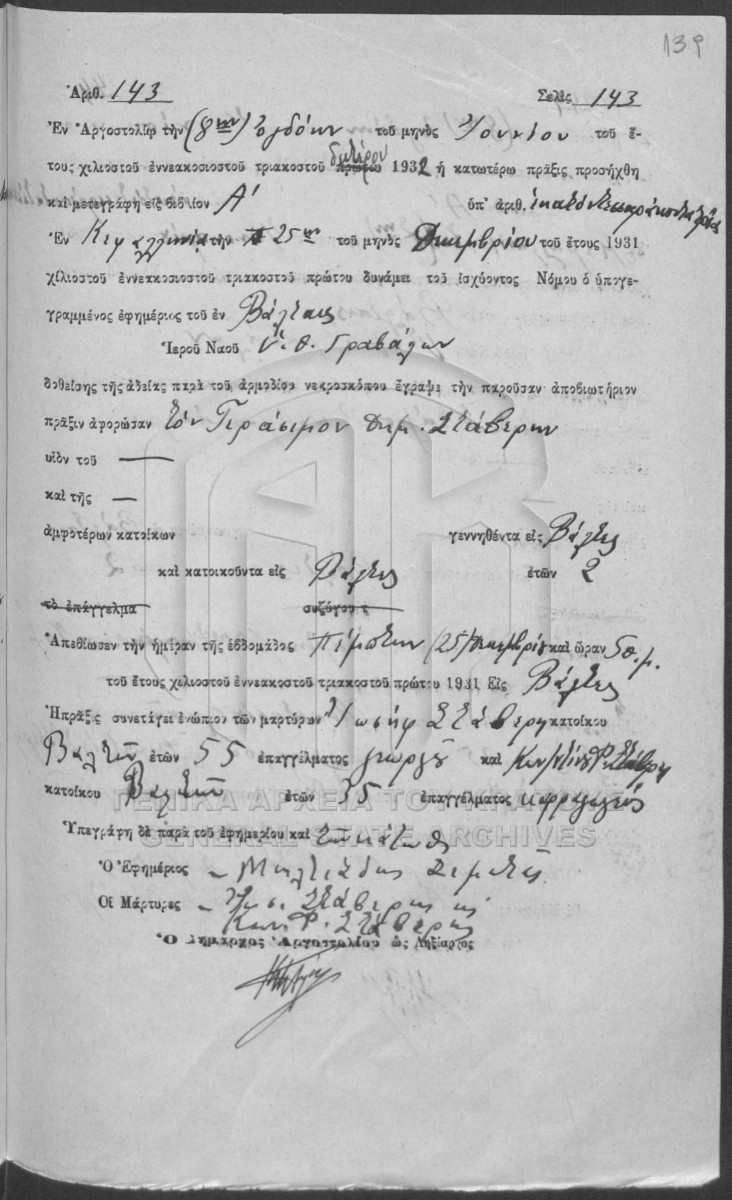 139
Ἀριθ. 143 Σελὶς 143
Ἐν Ἀργοστολίῳ τὴν (8ην) Ὀγδόην τοῦ μηνὸς Ἰουνίου τοῦ ἔ-
δευτέρου
τους χιλιοστοῦ ἐννεακοσιοστοῦ τριακοστοῦ πρώτου 1932 ἡ κατωτέρω πρᾶξις προσήχθη
καὶ μετεγράφη εἰς βιβλίον Α' ὑπ' ἀριθ.
Ἐν Κεφαλληνίᾳ τὴν 25ην τοῦ μηνὸς Δεκεμβρίου τοῦ ἔτους 1931
χιλιοστοῦ ἐννεακοσιοστοῦ τριακοστοῦ πρώτου δυνάμει τοῦ ἰσχύοντος Νόμου ὁ ὑπογε-
γραμμένος ἐφημέριος τοῦ ἐν Βάλταις
Ἱεροῦ Ναοῦ Ὑ. Θ. Γραβάλων
δοθείσης τῆς ἀδείας παρὰ τοῦ ἁρμοδίου νεκροσκόπου ἔγραψε τὴν παροῦσαν ἀποβιωτήριον
πρᾶξιν ἀφορῶσαν τὸν Γεράσιμον Δημ. Στάβερην
υἱὸν τοῦ —
καὶ τῆς —
ἀμφοτέρων κατοίκων γεννηθέντα εἰς Βάλτες
καὶ κατοικοῦντα εἰς Βάλτες ἐτῶν 2
τὸ ἐπάγγελμα συζύγου τ
Ἀπεβίωσεν τὴν ἡμέραν τῆς ἑβδομάδος Πέμπτην (25) Δεκεμβρίου καὶ ὥραν 5 π.μ.
τοῦ ἔτους χιλιοστοῦ ἐννεακοστοῦ τριακοστοῦ πρώτου 1931 Εἰς Βάλτες
Ἡ πρᾶξις συνετάγει ἐνώπιον τῶν μαρτύρων Ἰωσὴφ Στάβερη κατοίκου
Βαλτῶν ἐτῶν 55 ἐπαγγέλματος γεωργοῦ καὶ
κατοίκου Βαλτῶν ἐτῶν 35 ἐπαγγέλματος
Ὑπεγράφη δὲ παρὰ τοῦ ἐφημερίου καὶ
Ὁ Ἐφημέριος Μιλτιάδης
Οἱ Μάρτυρες Ἰωσ. Στάβερης κ
Κων. Φ. Στάβερης
Ὁ Δήμαρχος Ἀργοστολίου ὡς Ληξίαρχος
ΓΕΝΙΚΑ ΑΡΧΕΙΑ ΤΟΥ ΚΡΑΤΟΥΣ
GENERAL STATE ARCHIVES